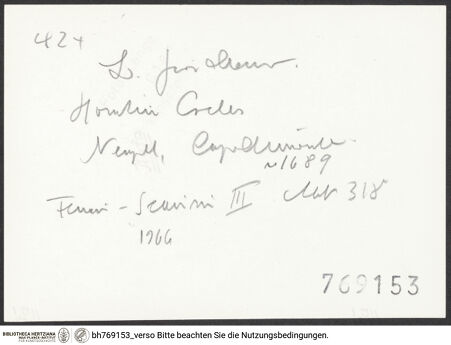 424
L. Giordano.
Horatius Cocles
Neapel, Capodimonte.
~1689
Ferrari-Scavizzi III Abb 318
1966
769153
BIBLIOTHECA HERTZIANA
bh769153_verso Bitte beachten Sie die Nutzungsbedingungen.